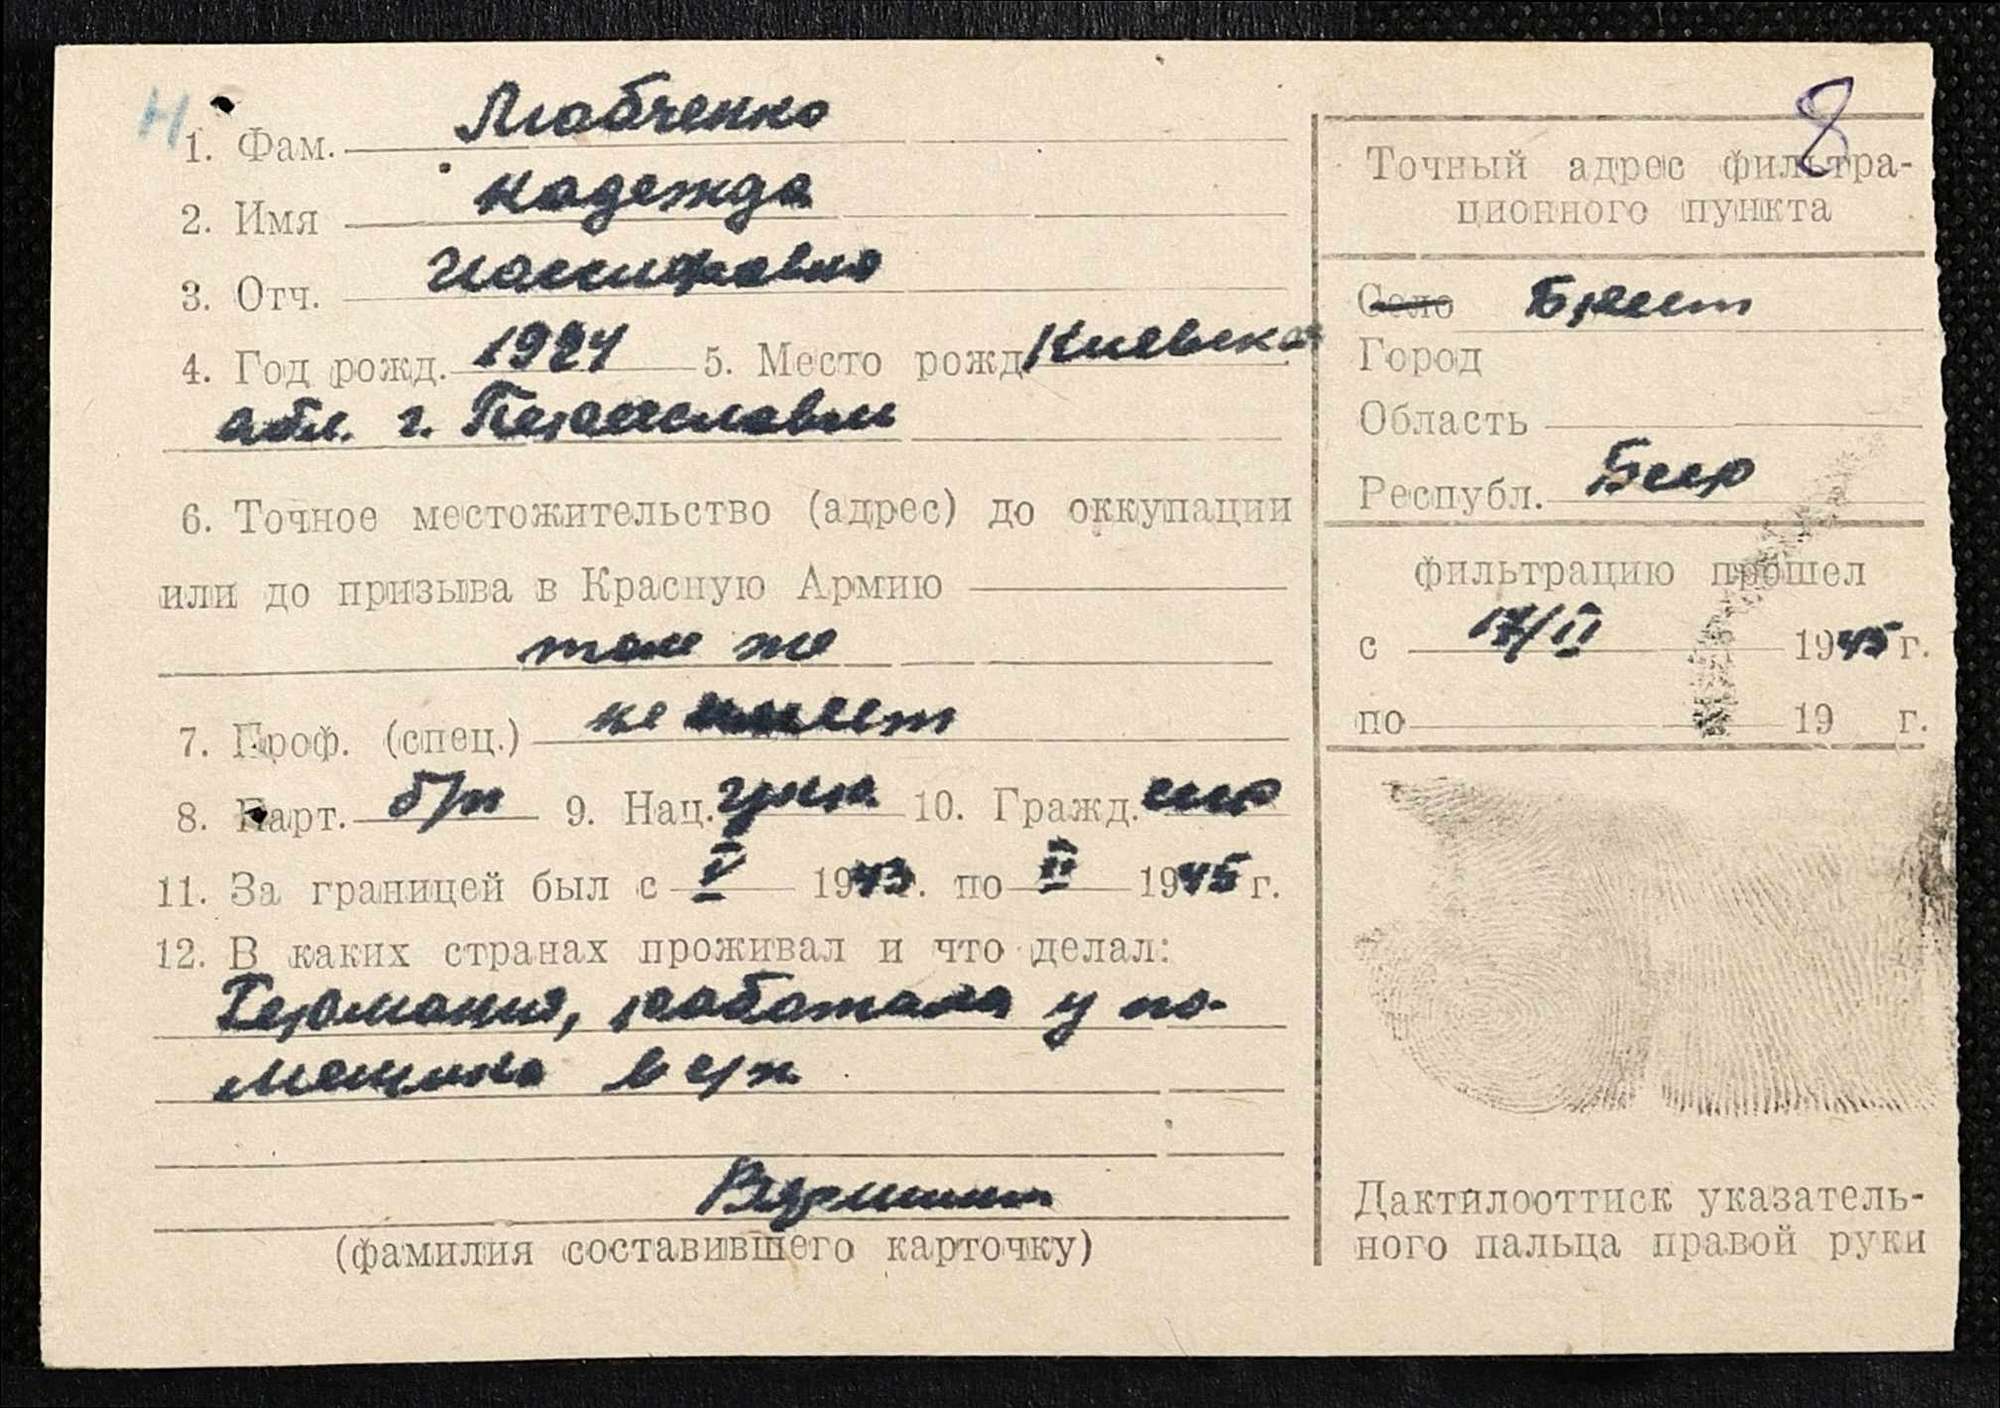 Н
8
1. Фам. Любченко
2. Имя Надежда
3. Отч. Иосифовна
4. Год рожд. 1924 5. Место рожд. Киевская
обл. г. Переяславль
6. Точное местожительство (адрес) до оккупации
или до призыва в Красную Армию
там же
7. Проф. (спец.) не имеет
8. Парт. б/п 9. Нац. укр. 10. Гражд. ссср
11. За границей был с V 1943. по II 1945 г.
12. В каких странах проживал и что делал:
Германия, работала у по-
мещика в с/х
(фамилия составившего карточку)
Точный адрес фильтра-
ционного пункта
Село Брест
Город
Область
Республ. Бсср
фильтрацию прошел
с 17/II 1945 г.
по 19 г.
Дактилооттиск указатель-
ного пальца правой руки